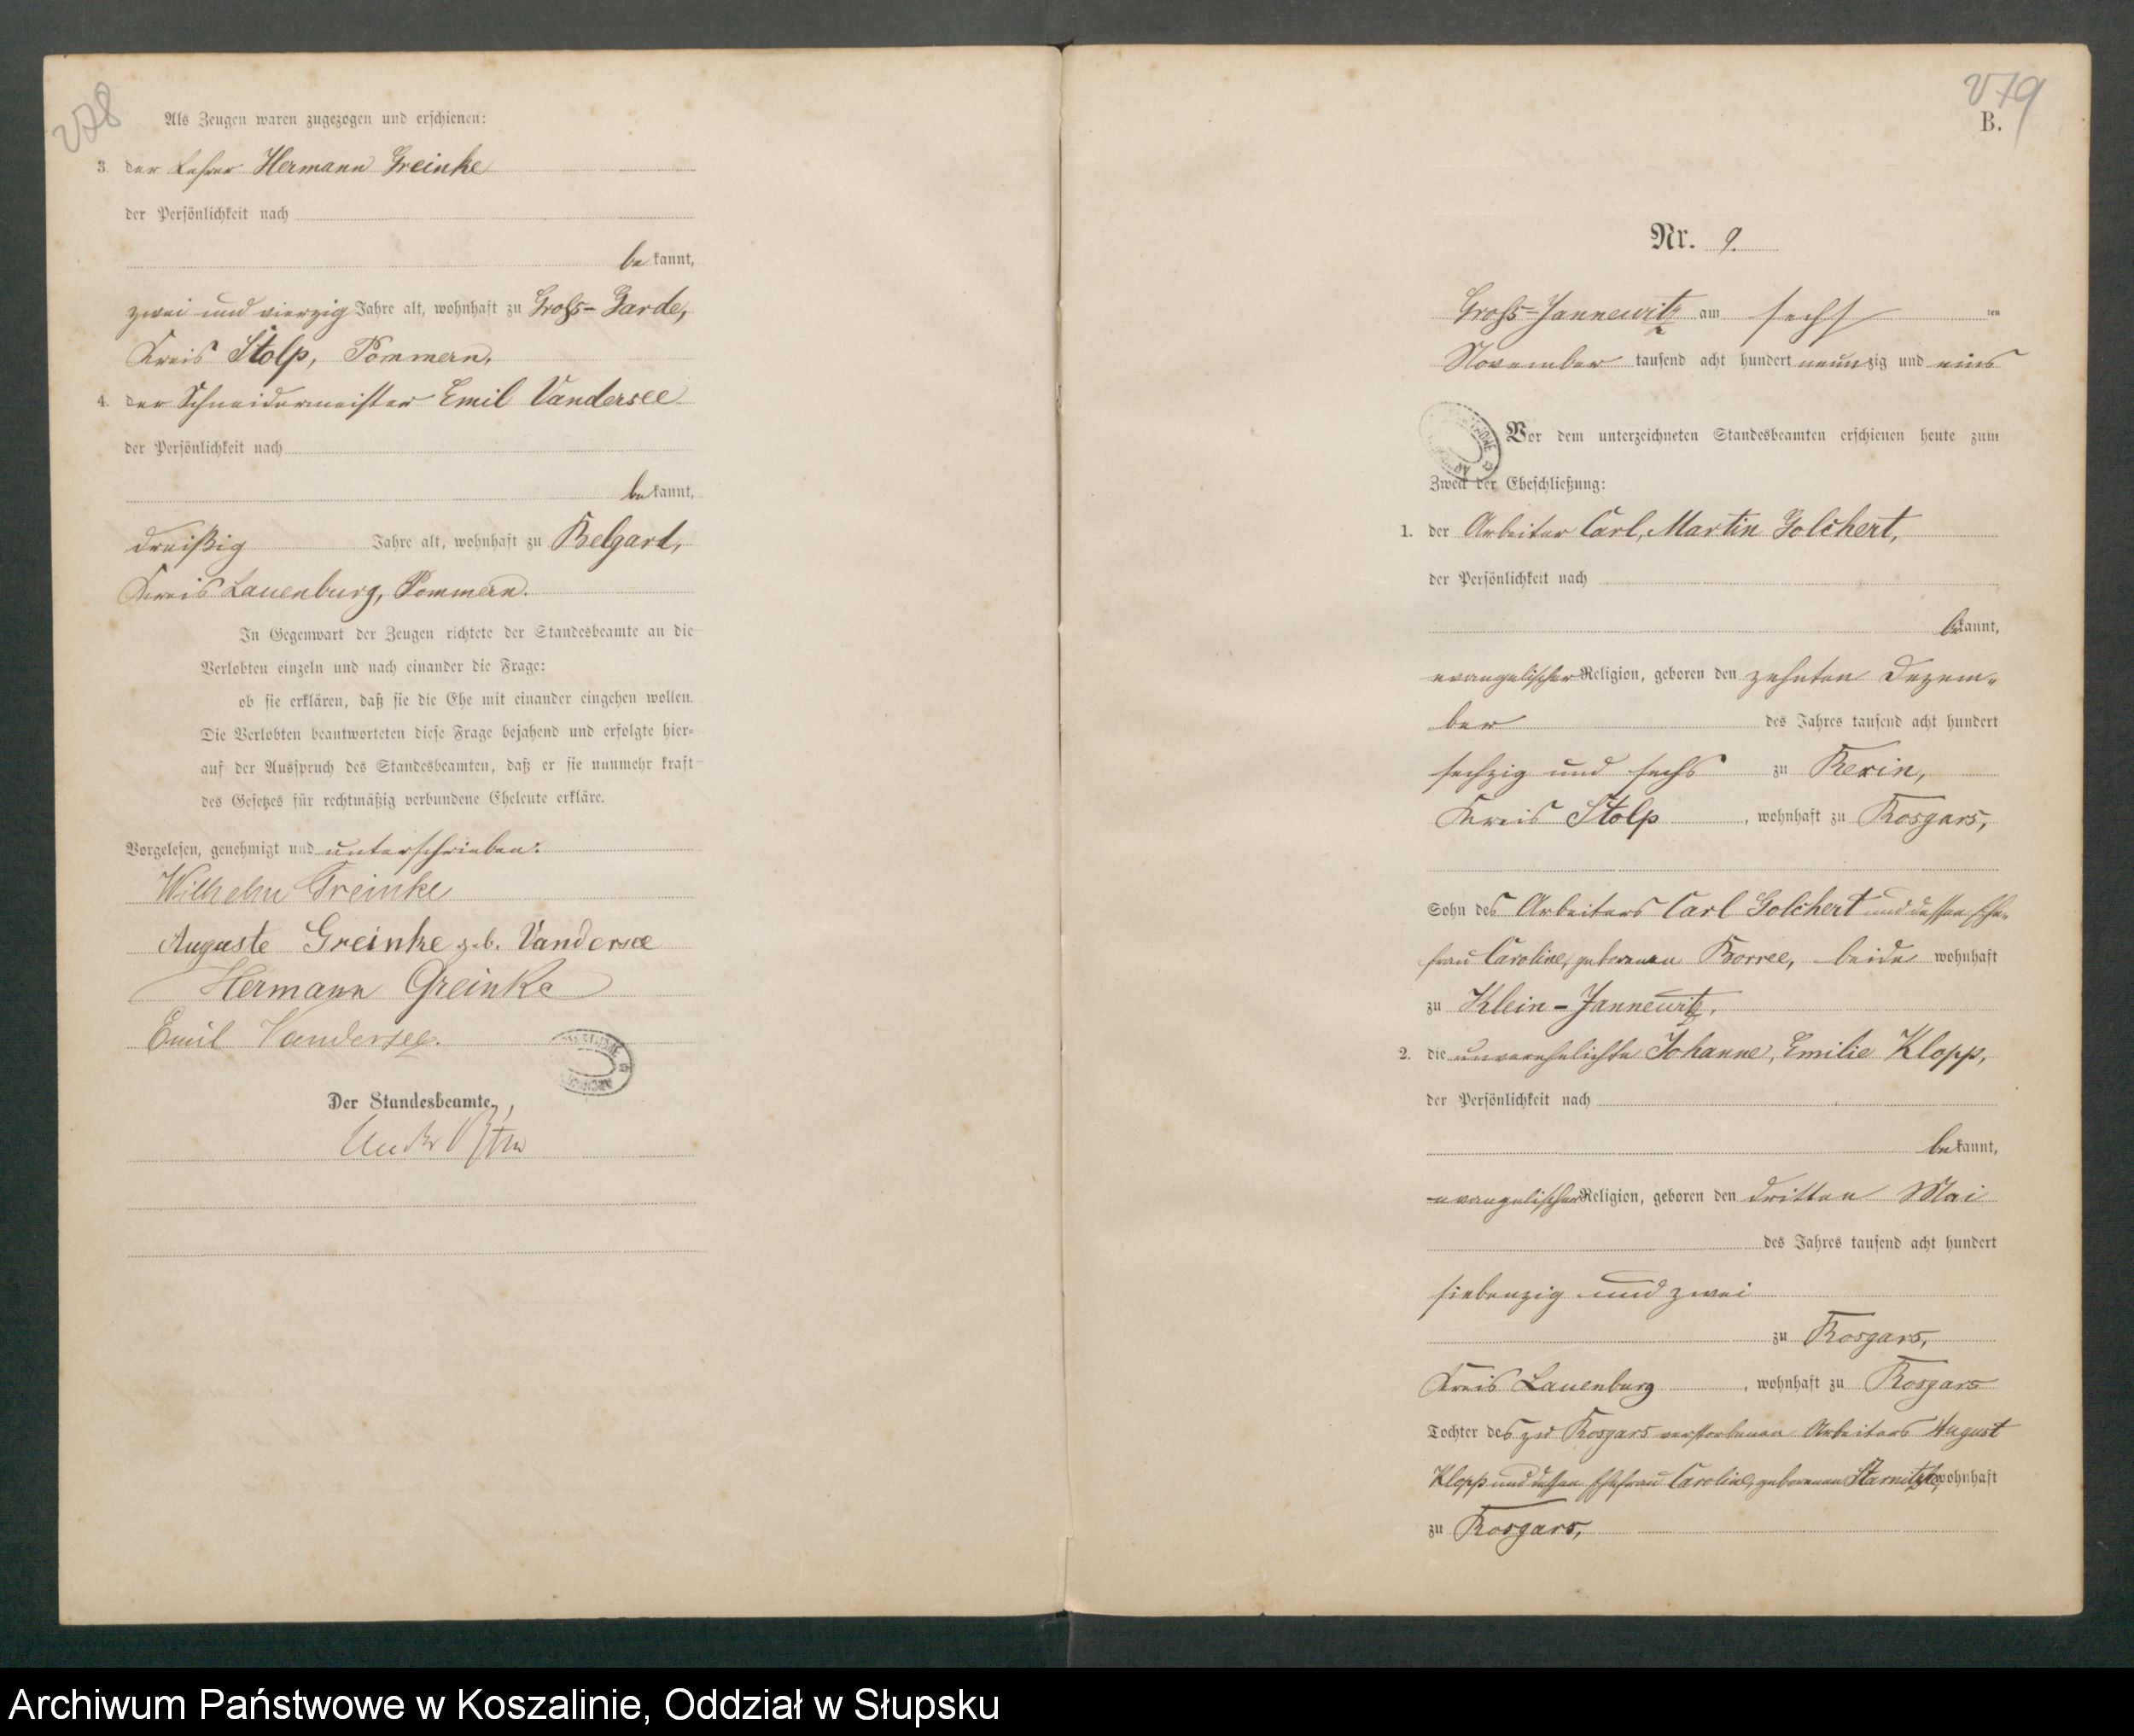 278
Als Zeugen waren zugezogen und erschienen:
3. der Lehrer Hermann Greinke
der Persönlichkeit nach
be kannt,
zwei und vierzig Jahre alt, wohnhaft zu Groß-Garde,
Kreis Stolp, Pommern.
4. der Schneidermeister Emil Vandersee
der Persönlichkeit nach
be kannt,
dreißig Jahre alt, wohnhaft zu Belgard,
Kreis Lauenburg, Pommern.
In Gegenwart der Zeugen richtete der Standesbeamte an die
Verlobten einzeln und nach einander die Frage:
ob sie erklären, daß sie die Ehe mit einander eingehen wollen.
Die Verlobten beantworteten diese Frage bejahend und erfolgte hier-
auf der Ausspruch des Standesbeamten, daß er sie nunmehr kraft
des Gesetzes für rechtmäßig verbundene Eheleute erkläre.
Vorgelesen, genehmigt und unterschrieben:
Wilhelm Greinke
Auguste Greinke geb. Vandersee
Hermann Greinke
Emil Vandersee.
Der Standesbeamte.
279
B.
Nr. 9.
Groß-Jannewitz am sechs ten
November tausend acht hundert neunzig und eins
Vor dem unterzeichneten Standesbeamten erschienen heute zum
Zweck der Eheschließung:
1. der Arbeiter Carl, Martin Golchert,
der Persönlichkeit nach
be kannt,
evangelischer Religion, geboren den zehnten Dezem-
ber des Jahres tausend acht hundert
sechzig und sechs zu Rexin,
Kreis Stolp, wohnhaft zu Rosgars,
Sohn des Arbeiters Carl Golchert und dessen Ehe-
frau Caroline, geborenen Borree, beide wohnhaft
zu Klein-Jannewitz.
2. die unverehelichte Johanne, Emilie Klopp,
der Persönlichkeit nach
be kannt,
evangelischer Religion, geboren den dritten Mai
des Jahres tausend acht hundert
siebenzig und zwei
zu Rosgars,
Kreis Lauenburg, wohnhaft zu Rosgars
Tochter des zu Rosgars verstorbenen Arbeiters August
Klopp und dessen Ehefrau Caroline, geborenen Starnitzke, wohnhaft
zu Rosgars,
Archiwum Państwowe w Koszalinie, Oddział w Słupsku